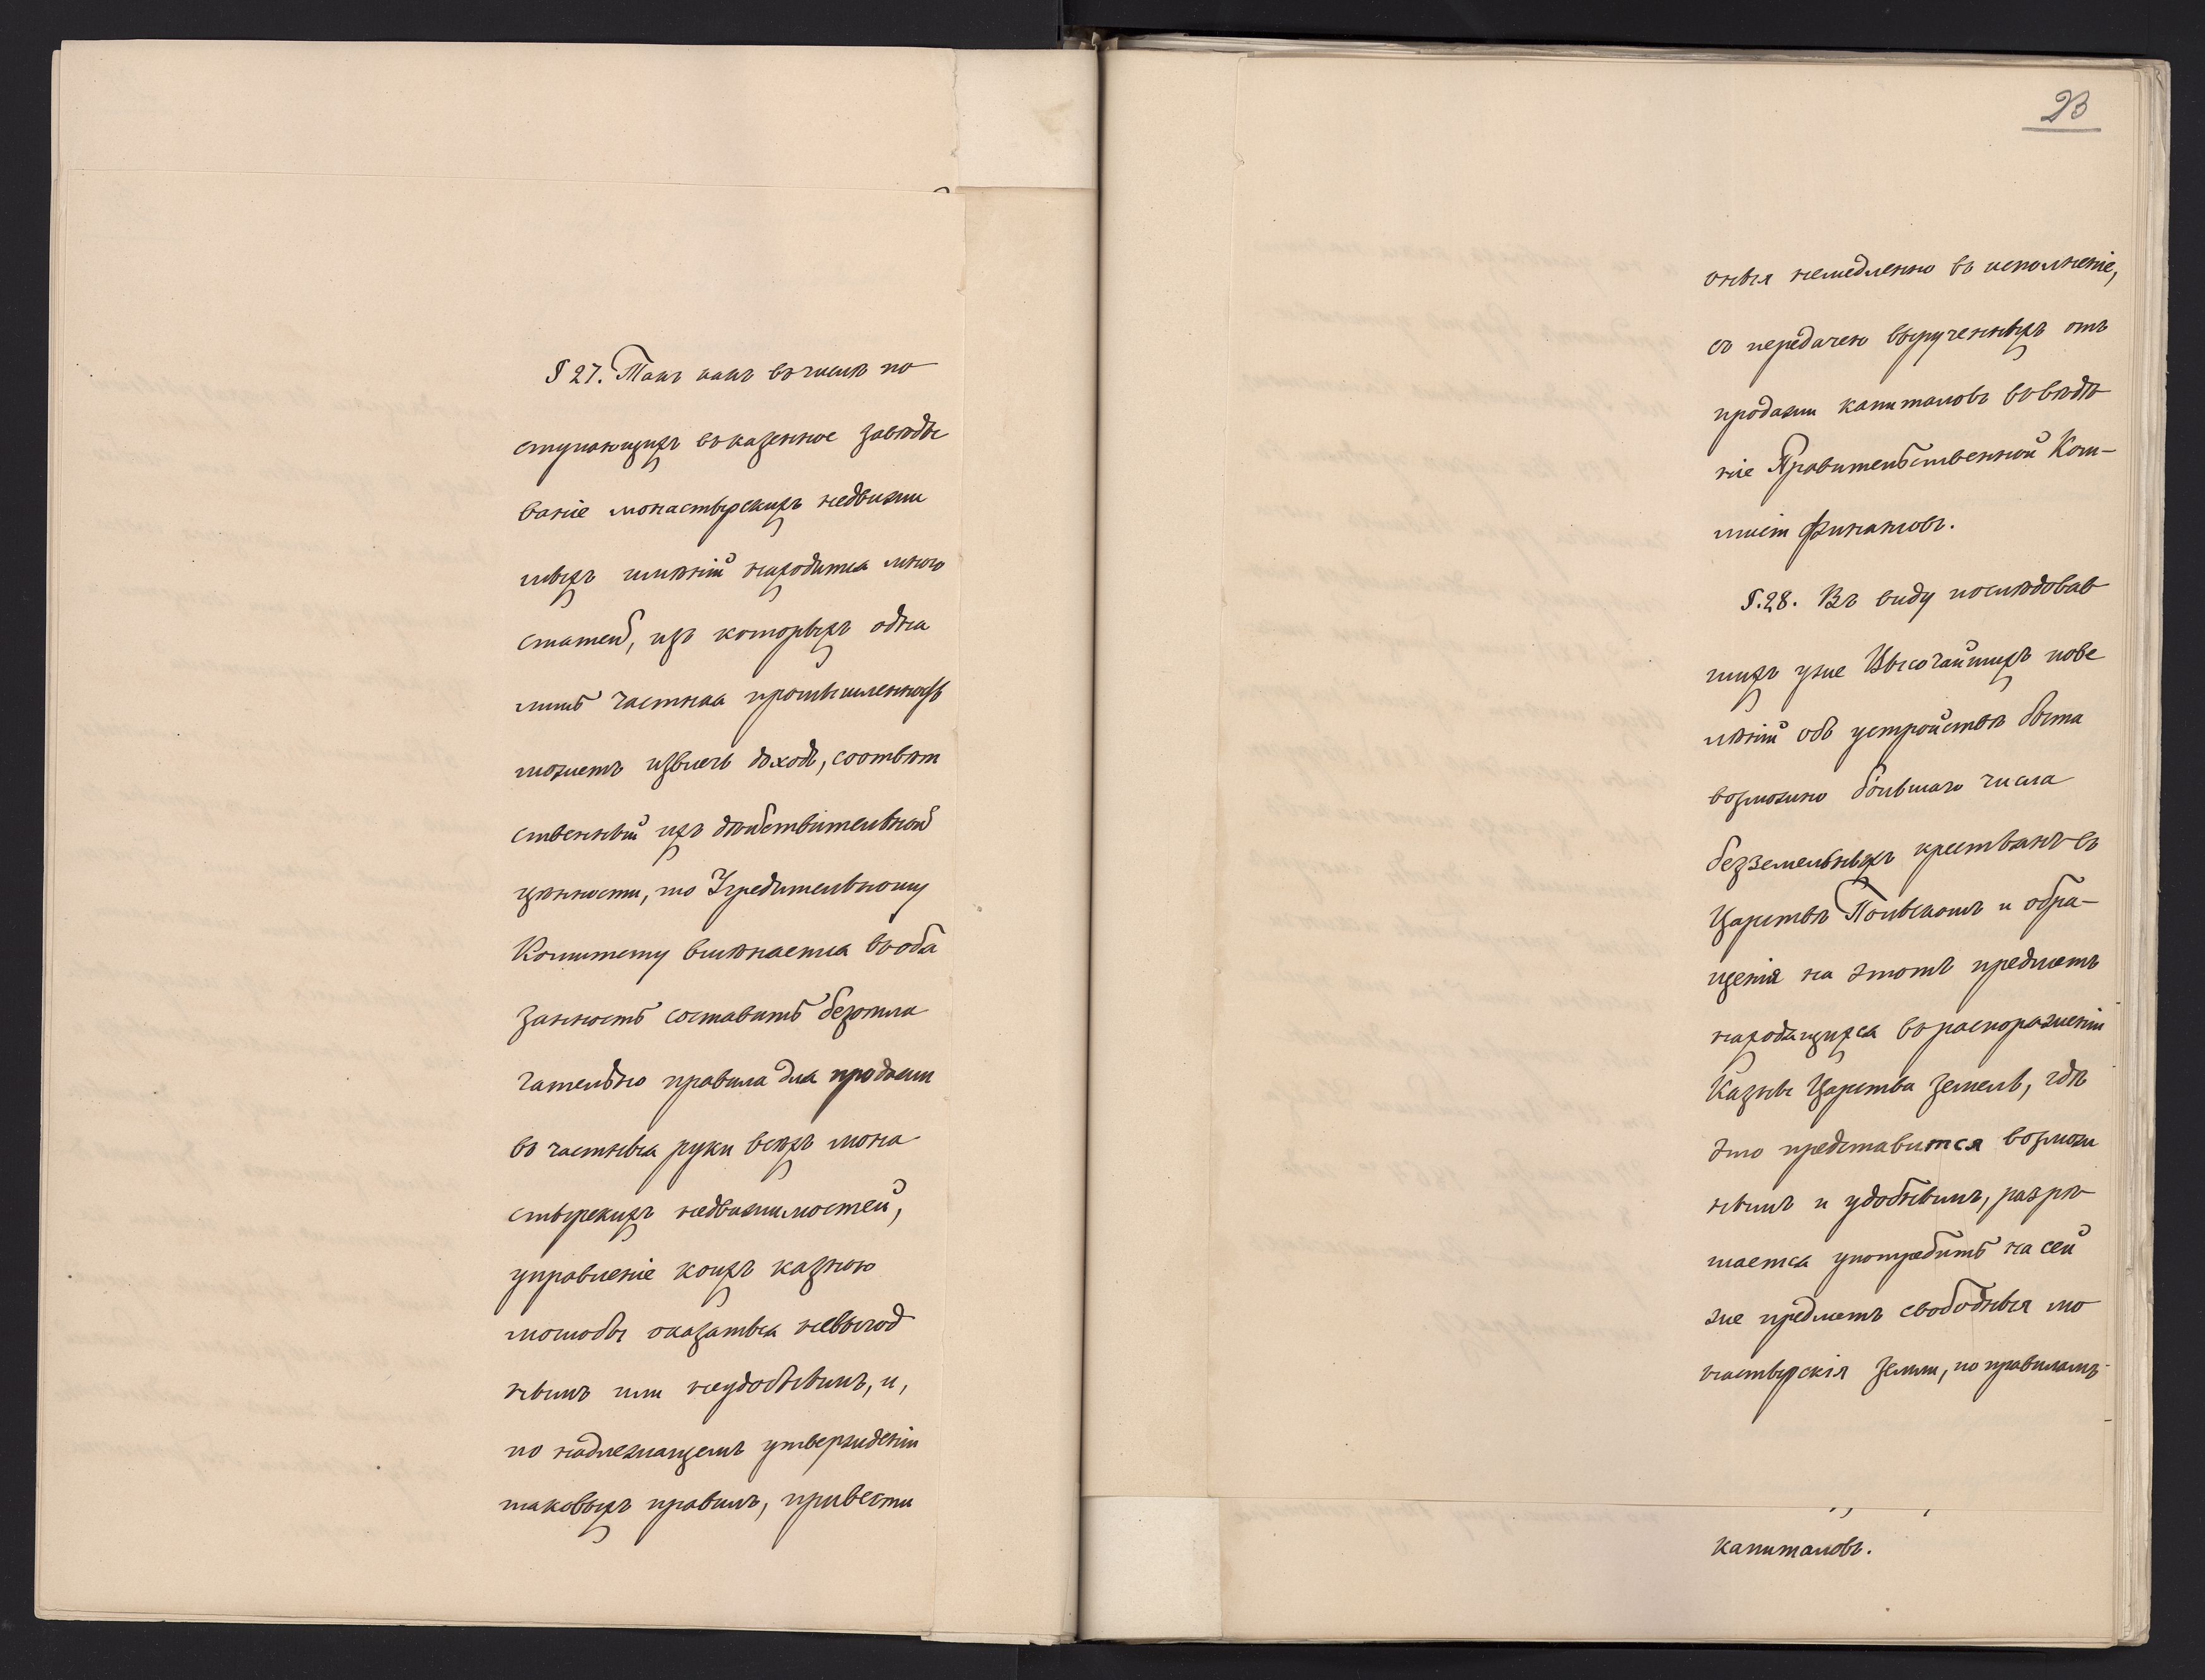 § 27. Такъ какъ въ числѣ по
ступающихъ въ казенное завѣды
ваніе монастырскихъ недвижи
мыхъ имѣній находится много
статей, изъ которыхъ одна
лишь частная промышленность
можетъ извлечь доходъ, соотвѣт
ственный ихъ дѣйствительной
цѣнности, то Учредительному
Комитету вмѣняется въ обя
занность составить безотла
гательно правила для продажи
въ частныя руки всѣхъ мона
стырскихъ недвижимостей,
управленіе коихъ казною
могло бы оказаться невыгод
нымъ или неудобнымъ, и,
по надлежащемъ утвержденіи
таковыхъ правилъ, привести
23
оныя немедленно въ исполненіе,
съ передачею вырученныхъ отъ
продажи капиталовъ въ вѣдѣ
ніе Правительственной Ком-
мисіи Финансовъ.
§. 28. Въ виду послѣдовав
шихъ уже Высочайшихъ пове
лѣній объ устройствѣ быта
возможно бóльшаго числа
безземельныхъ крестьянъ въ
Царствѣ Польскомъ и обра-
щенія на этотъ предметъ
находящихся въ распоряженіи
Казны Царства земель, гдѣ
это представится возмож
нымъ и удобнымъ, разрѣ
шается употребить на сей
же предметъ свободныя мо
настырскія земли, по правиламъ
капиталовъ.